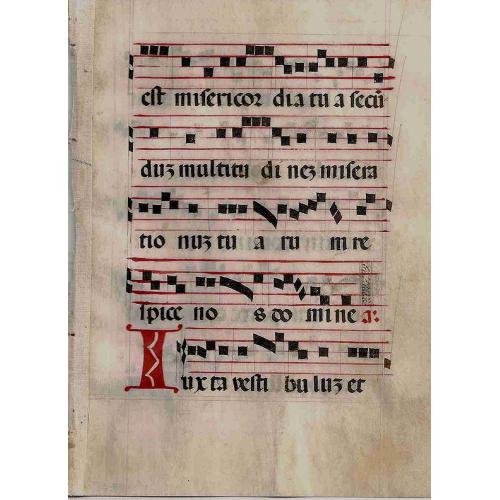 est misericor dia tu a secū
duz multitu di nez misera
tio nuz tu a ru m re
spice no s do mine ā.
Iuxta vesti bu luz et